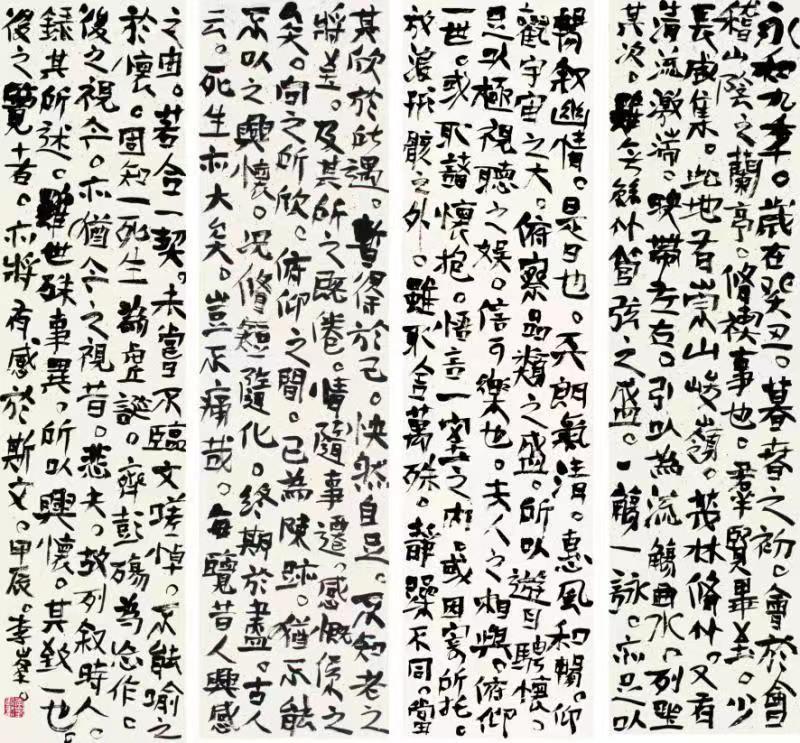 永和九年。歲在癸丑。暮春之初。會於會
稽山陰之蘭亭。脩禊事也。羣賢畢至。少
長咸集。此地有崇山峻嶺。茂林脩竹。又有
清流激湍。映帶左右。引以為流觴曲水。列坐
其次。雖無絲竹管弦之盛。一觴一詠。亦足以
暢叙幽情。是日也。天朗氣清。惠風和暢。仰
觀宇宙之大。俯察品類之盛。所以遊目騁懷。
足以極視聽之娛。信可樂也。夫人之相與。俯仰
一世。或取諸懷抱。悟言一室之內。或因寄所托。
放浪形骸之外。雖取舍萬殊。靜躁不同。當
其欣於所遇。暫得於己。怏然自足。不知老之
將至。及其所之既倦。情隨事遷。感慨係之
矣。向之所欣。俯仰之間。已為陳跡。猶不能
不以之興懷。況脩短隨化。終期於盡。古人
云。死生亦大矣。豈不痛哉。每覽昔人興感
之由。若合一契。未嘗不臨文嗟悼。不能喻之
於懷。固知一死生為虛誕。齊彭殤為妄作。
後之視今。亦猶今之視昔。悲夫。故列叙時人。
錄其所述。雖世殊事異。所以興懷。其致一也
後之覽者。亦將有感於斯文。甲辰。李峯。